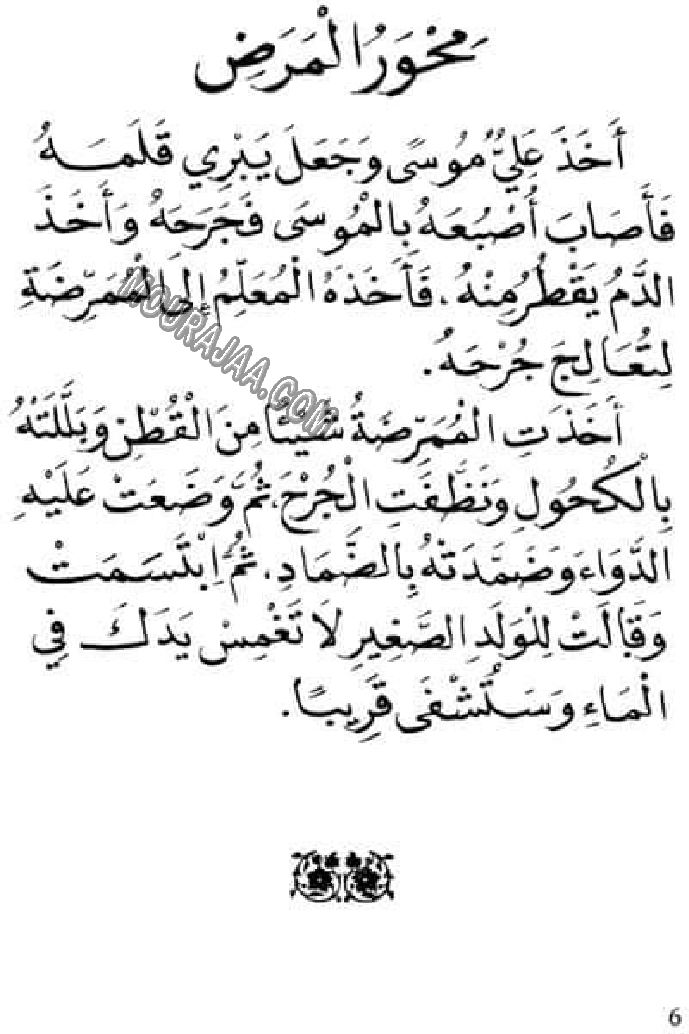 مَحْوَرُ الْمَرَضِ
أَخَذَ عَلِيٌّ مُوسَى وَجَعَلَ يَبْرِي قَلَمَهُ
فَأَصَابَ أُصْبُعَهُ بِالْمُوسَى فَجَرَحَهُ وَأَخَذَ
الدَّمُ يَقْطُرُ مِنْهُ، فَأَخَذَهُ الْمُعَلِّمُ إِلَى الْمُمَرِّضَةِ
لِتُعَالِجَ جُرْحَهُ.
أَخَذَتِ الْمُمَرِّضَةُ شَيْئًا مِنَ الْقُطْنِ وَبَلَّلَتْهُ
بِالْكُحُولِ وَنَظَّفَتِ الْجُرْحَ، ثُمَّ وَضَعَتْ عَلَيْهِ
الدَّوَاءَ وَضَمَّدَتْهُ بِالضَّمَادِ، ثُمَّ اِبْتَسَمَتْ
وَقَالَتْ لِلْوَلَدِ الصَّغِيرِ لَا تَغْمِسْ يَدَكَ فِي
الْمَاءِ وَسَتُشْفَى قَرِيبًا.
MOURAJAA.COM
6